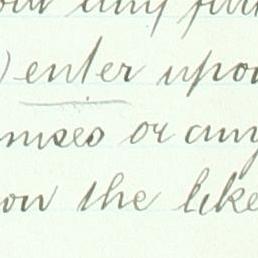 any
) enter upon
mises or any
on the like